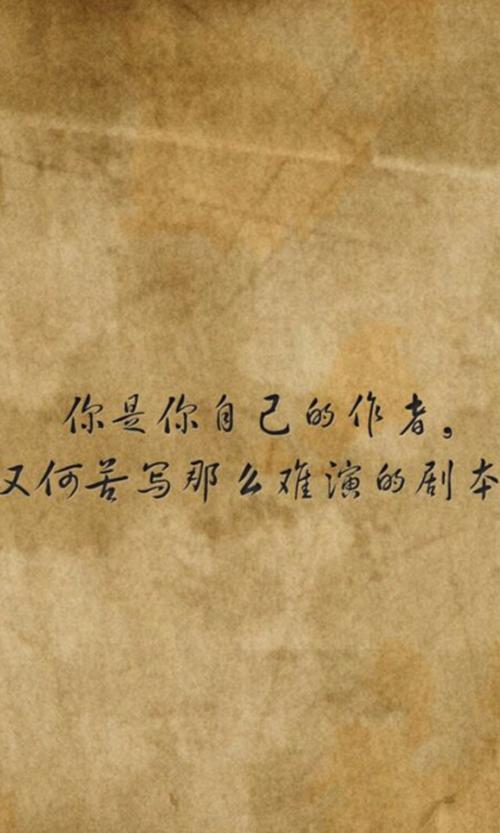 你是你自己的作者，
又何苦写那么难演的剧本